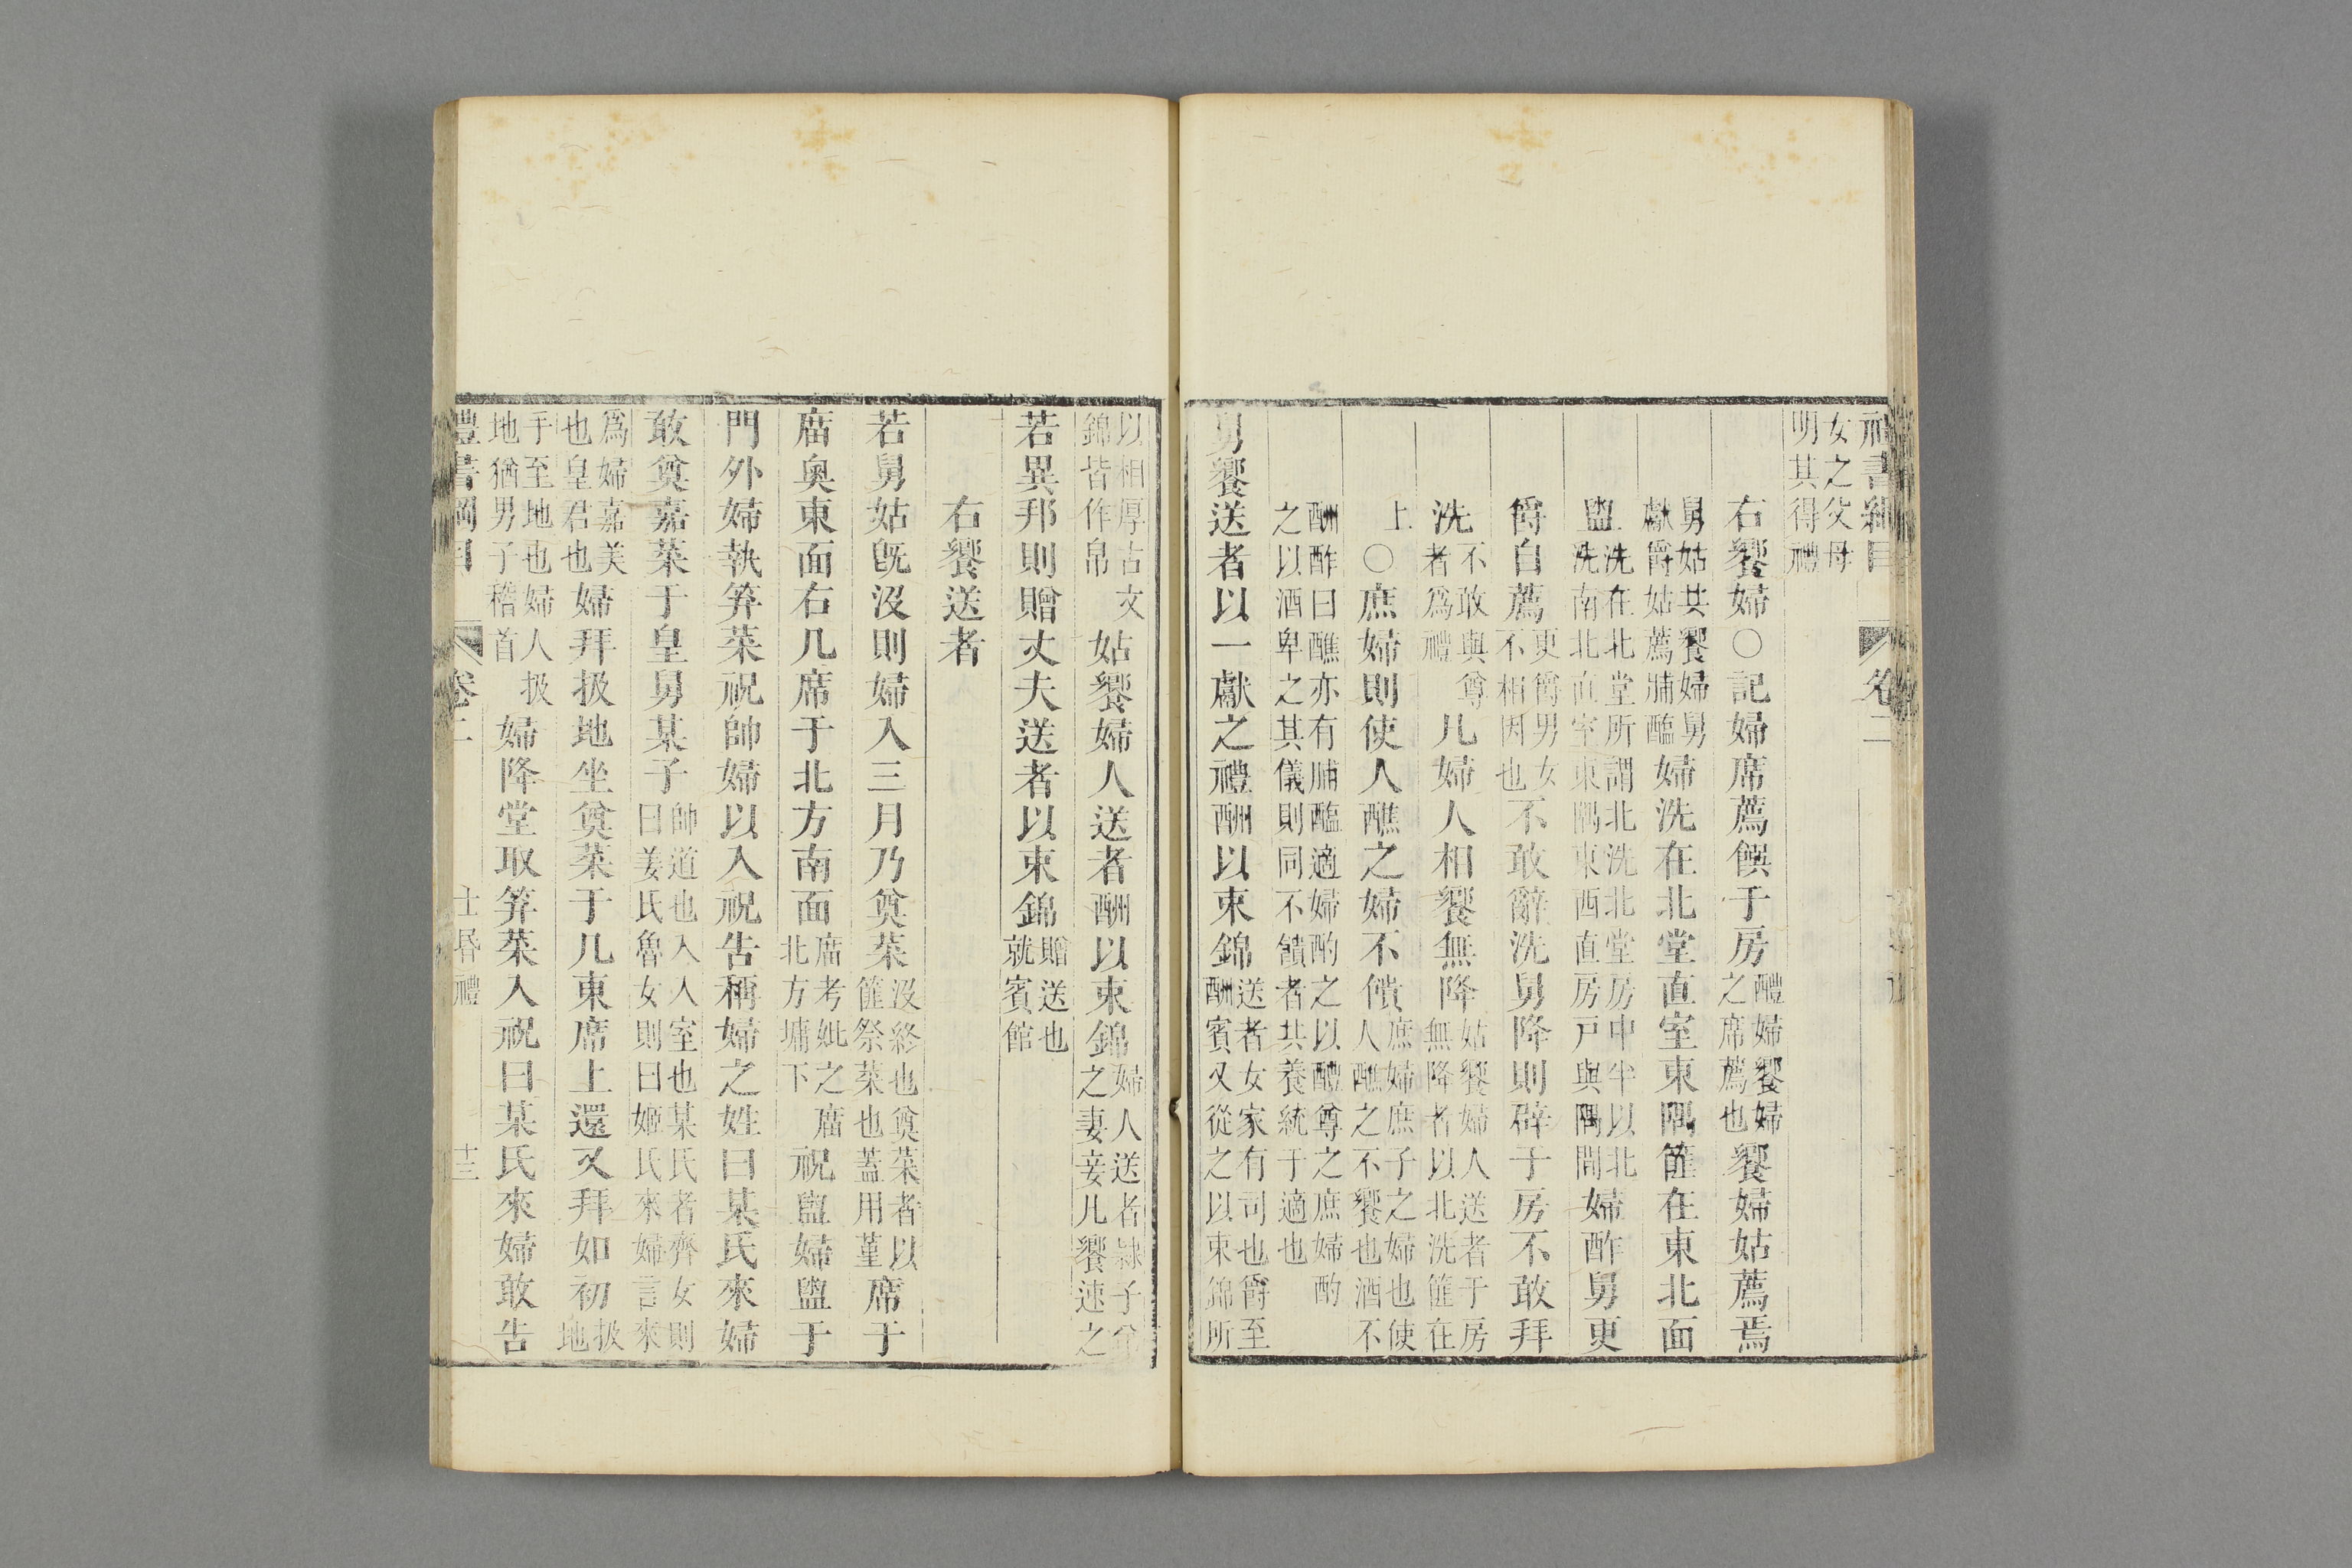 禮書綱目 卷二
女之父母
明其得禮
右饗婦〇記婦席薦饌于房醴婦饗婦之席薦也饗婦姑薦焉
舅姑共饗婦舅獻爵姑薦脯醢婦洗在北堂直室東隅篚在東北面
盥洗在北堂所謂北洗北堂房中半以北洗南北直室東隅東西直房戸與隅間婦酢舅更
爵自薦更爵男女不相因也不敢辭洗舅降則辟于房不敢拜
洗不敢與尊者爲禮凡婦人相饗無降姑饗婦人送者于房無降者以北洗篚在
上〇庶婦則使人醮之婦不饋庶婦庶子之婦也使人醮之不饗也酒不
酬酢曰醮亦有脯醢適婦酌之以醴尊之庶婦酌
之以酒卑之其儀則同不饋者共養統于適也
舅饗送者以一獻之禮酬以束錦送者女家有司也爵至酬賓又從之以束錦所
以相厚古文錦皆作帛姑饗婦人送者酬以束錦婦人送者隸子弟之妻妾凡饗速之
若異邦則贈丈夫送者以束錦贈送也就賓館
右饗送者
若舅姑旣沒則婦入三月乃奠菜沒終也奠菜者以篚祭菜也蓋用菫席于
廟奥東面右几席于北方南面廟考妣之廟北方墉下祝盥婦盥于
門外婦執笲菜祝帥婦以入祝告稱婦之姓曰某氏來婦
敢奠嘉菜于皇舅某子帥道也入入室也某氏者齊女則曰姜氏魯女則曰姬氏來婦言來
爲婦嘉美也皇君也婦拜扱地坐奠菜于几東席上還又拜如初扱地
手至地也婦人扱地猶男子稽首婦降堂取笲菜入祝曰某氏來婦敢告
禮書綱目 卷二 士昏禮 十三